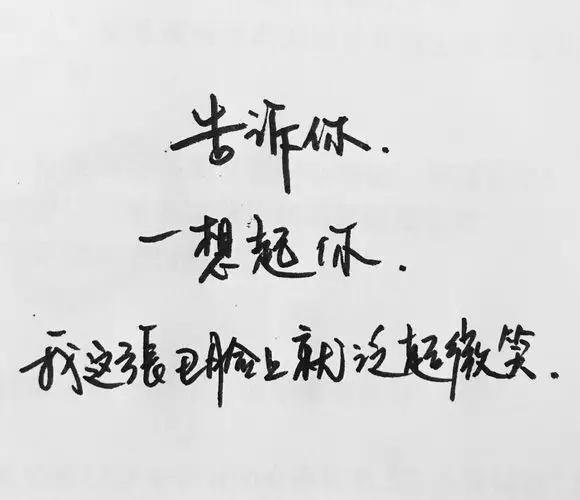 告诉你.
一想起你.
我这張丑脸上就泛起微笑.